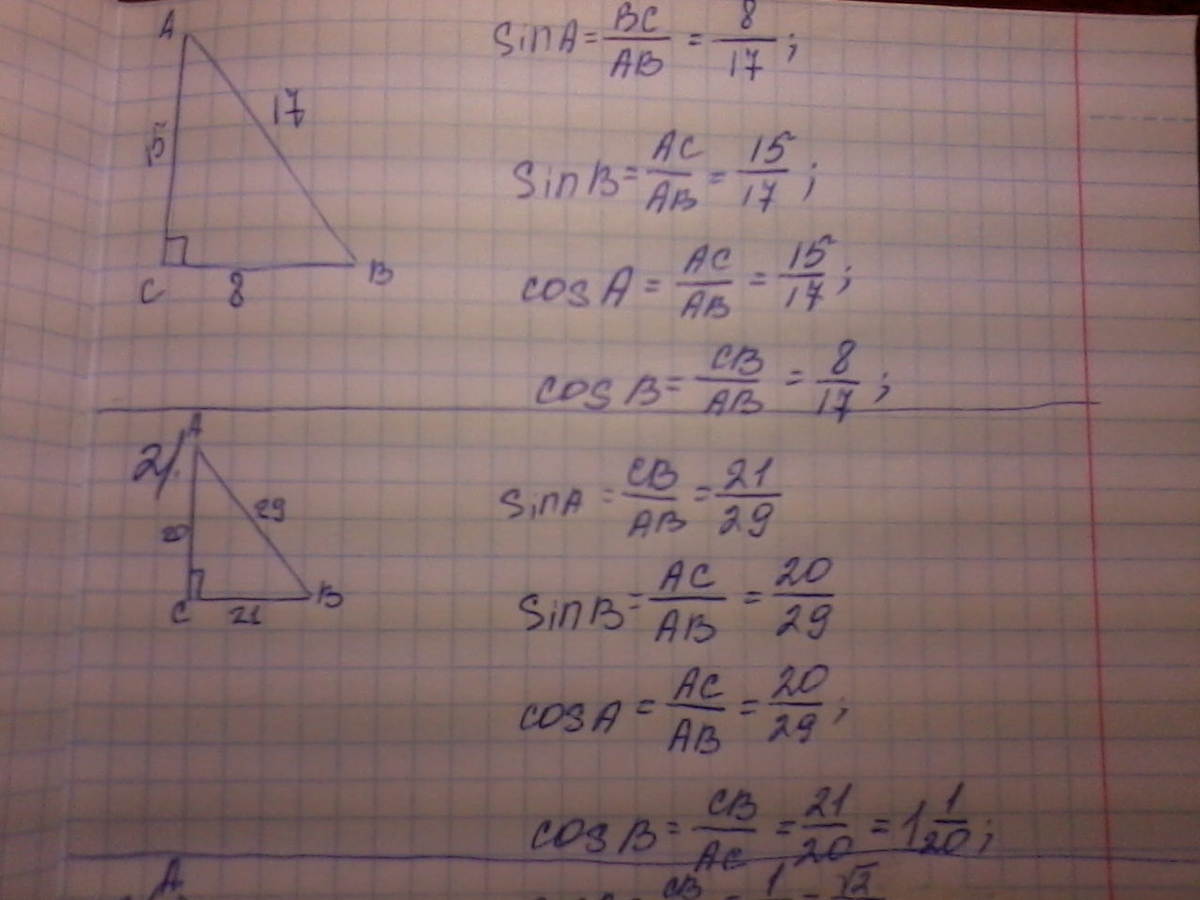 A
17
15
C
8
B
sinA = BC/AB = 8/17;
sinB = AC/AB = 15/17;
cosA = AC/AB = 15/17;
cosB = CB/AB = 8/17;
2).
A
29
20
C
21
B
sinA = CB/AB = 21/29
sinB = AC/AB = 20/29
cosA = AC/AB = 20/29;
cosB = CB/AC = 21/20 = 1 1/20;
A
CB = 1 = √2